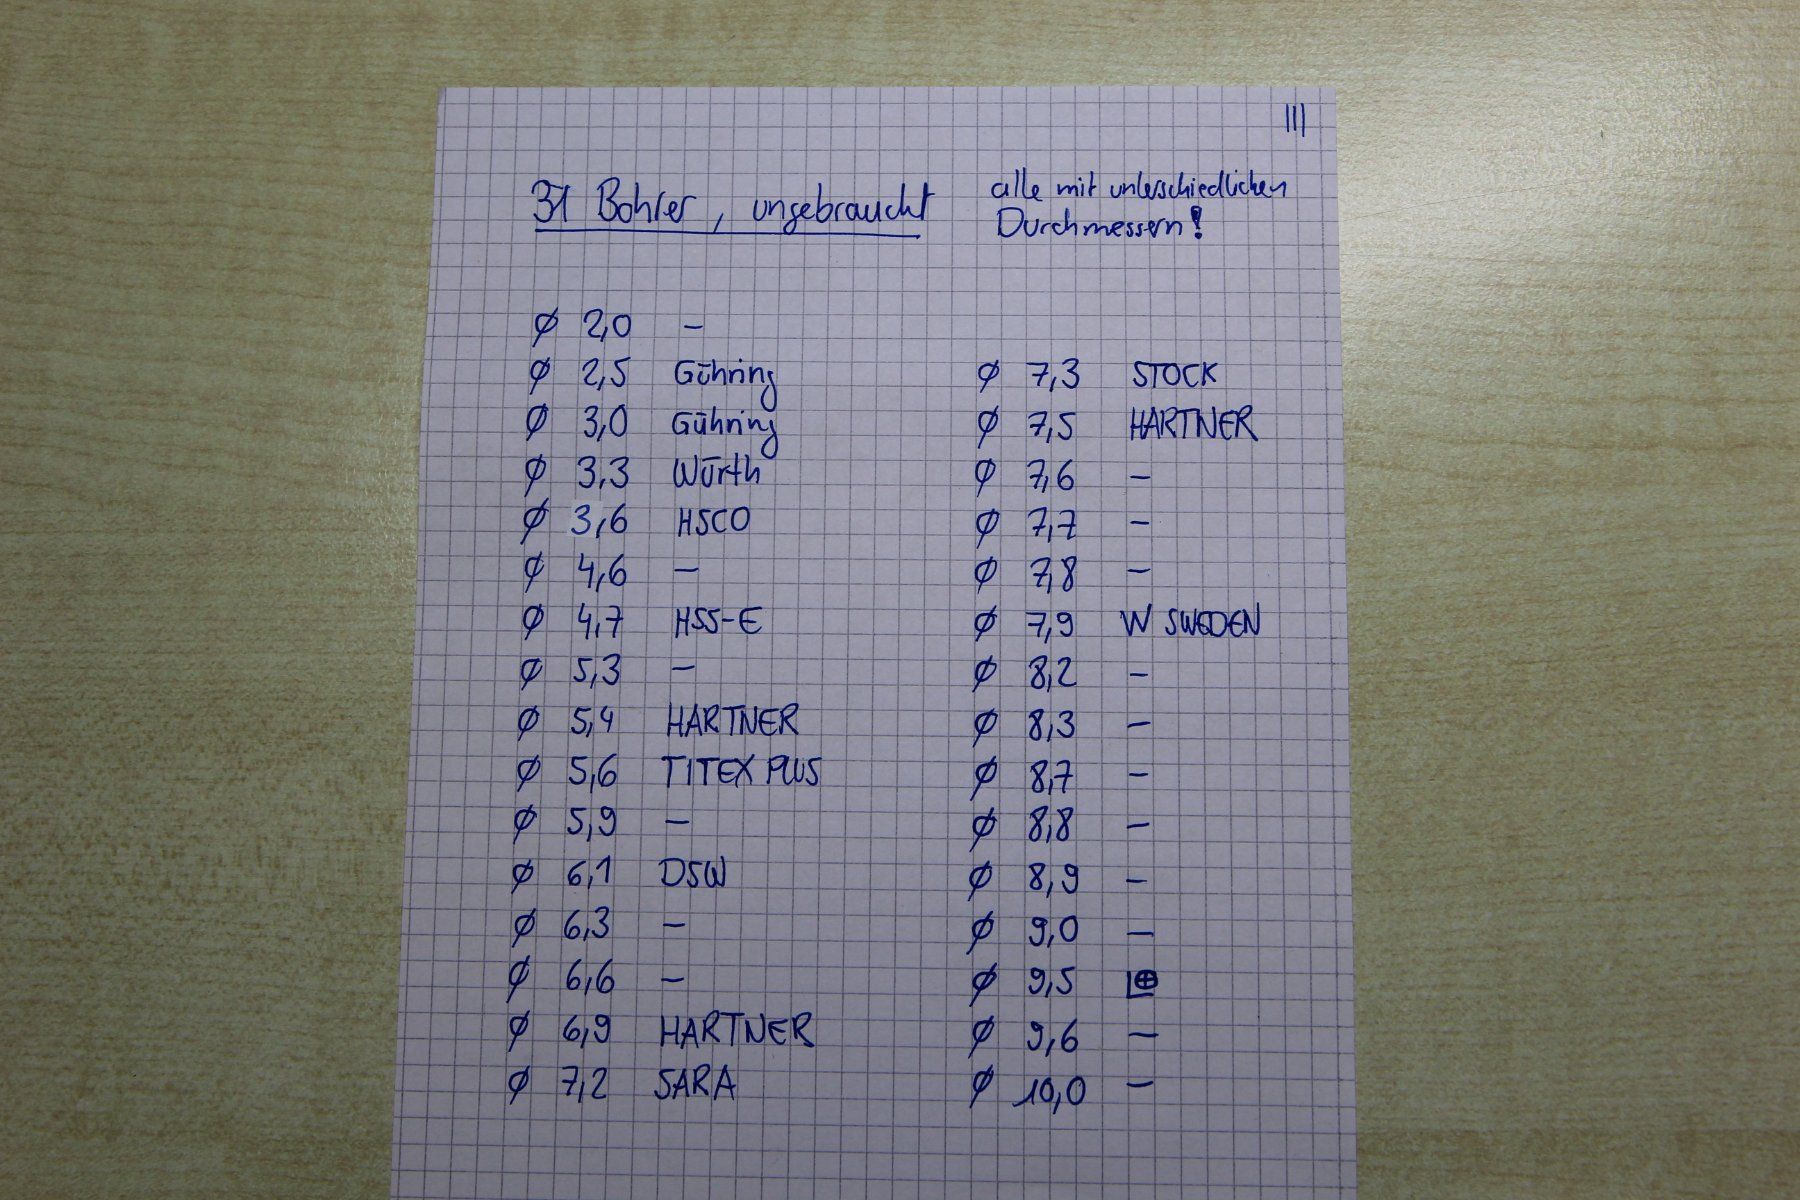 III
31 Bohrer, ungebraucht
alle mit unterschiedlichen
Durchmessern!
Ø 2,0 –
Ø 2,5 Gühring
Ø 3,0 Gühring
Ø 3,3 Würth
Ø 3,6 HSCO
Ø 4,6 –
Ø 4,7 HSS-E
Ø 5,3 –
Ø 5,4 HARTNER
Ø 5,6 TITEX PLUS
Ø 5,9 –
Ø 6,1 DSW
Ø 6,3 –
Ø 6,6 –
Ø 6,9 HARTNER
Ø 7,2 SARA
Ø 7,3 STOCK
Ø 7,5 HARTNER
Ø 7,6 –
Ø 7,7 –
Ø 7,8 –
Ø 7,9 W SWEDEN
Ø 8,2 –
Ø 8,3 –
Ø 8,7 –
Ø 8,8 –
Ø 8,9 –
Ø 9,0 –
Ø 9,5
Ø 9,6 –
Ø 10,0 –